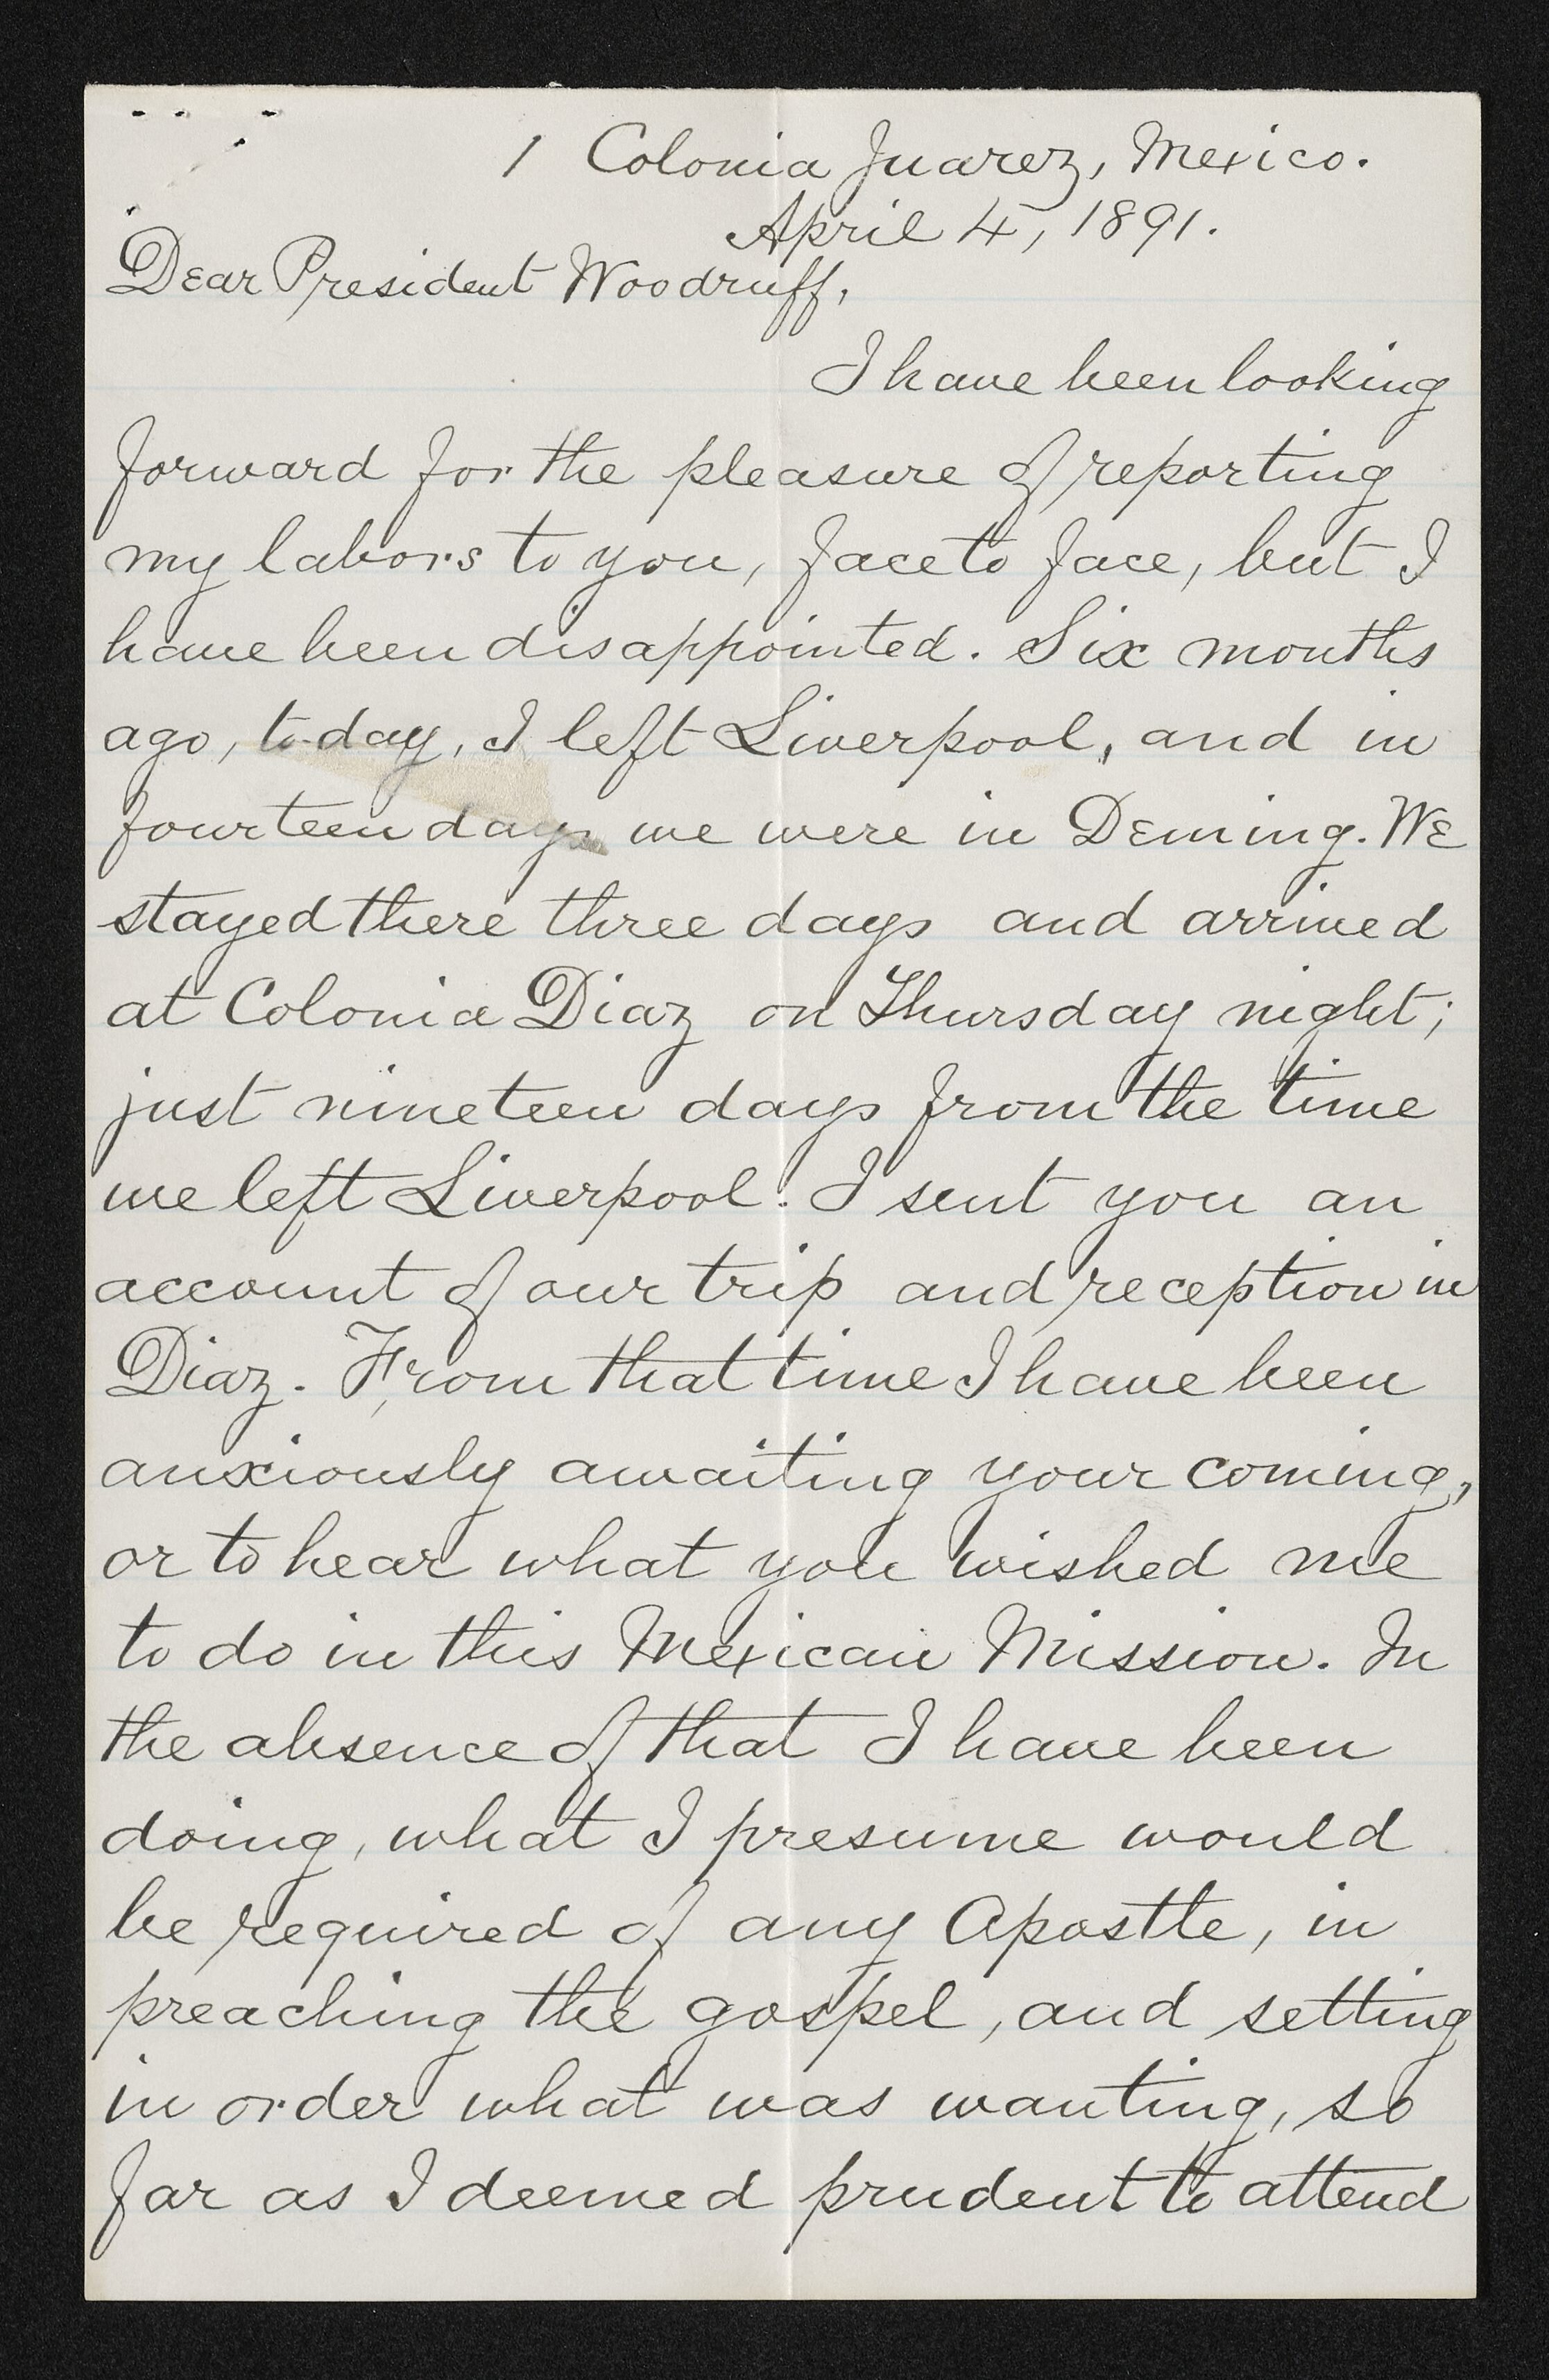 1 Colonia Juarez, Mexico.
April 4, 1891.
Dear President Woodruff,
I have been looking
forward for the pleasure of reporting
my labors to you, face to face, but I
have been disappointed. Six months
ago, to-day, I left Liverpool, and in
fourteen days we were in Deming. We
stayed there three days and arrived
at Colonia Diaz on Thursday night;
just nineteen days from the time
we left Liverpool. I sent you an
account of our trip and reception in
Diaz. From that time I have been
anxiously awaiting your coming,
or to hear what you wished me
to do in this Mexican Mission. In
the absence of that I have been
doing, what I presume would
be required of any Apostle, in
preaching the gospel, and setting
in order what was wanting, so
far as I deemed prudent to attend